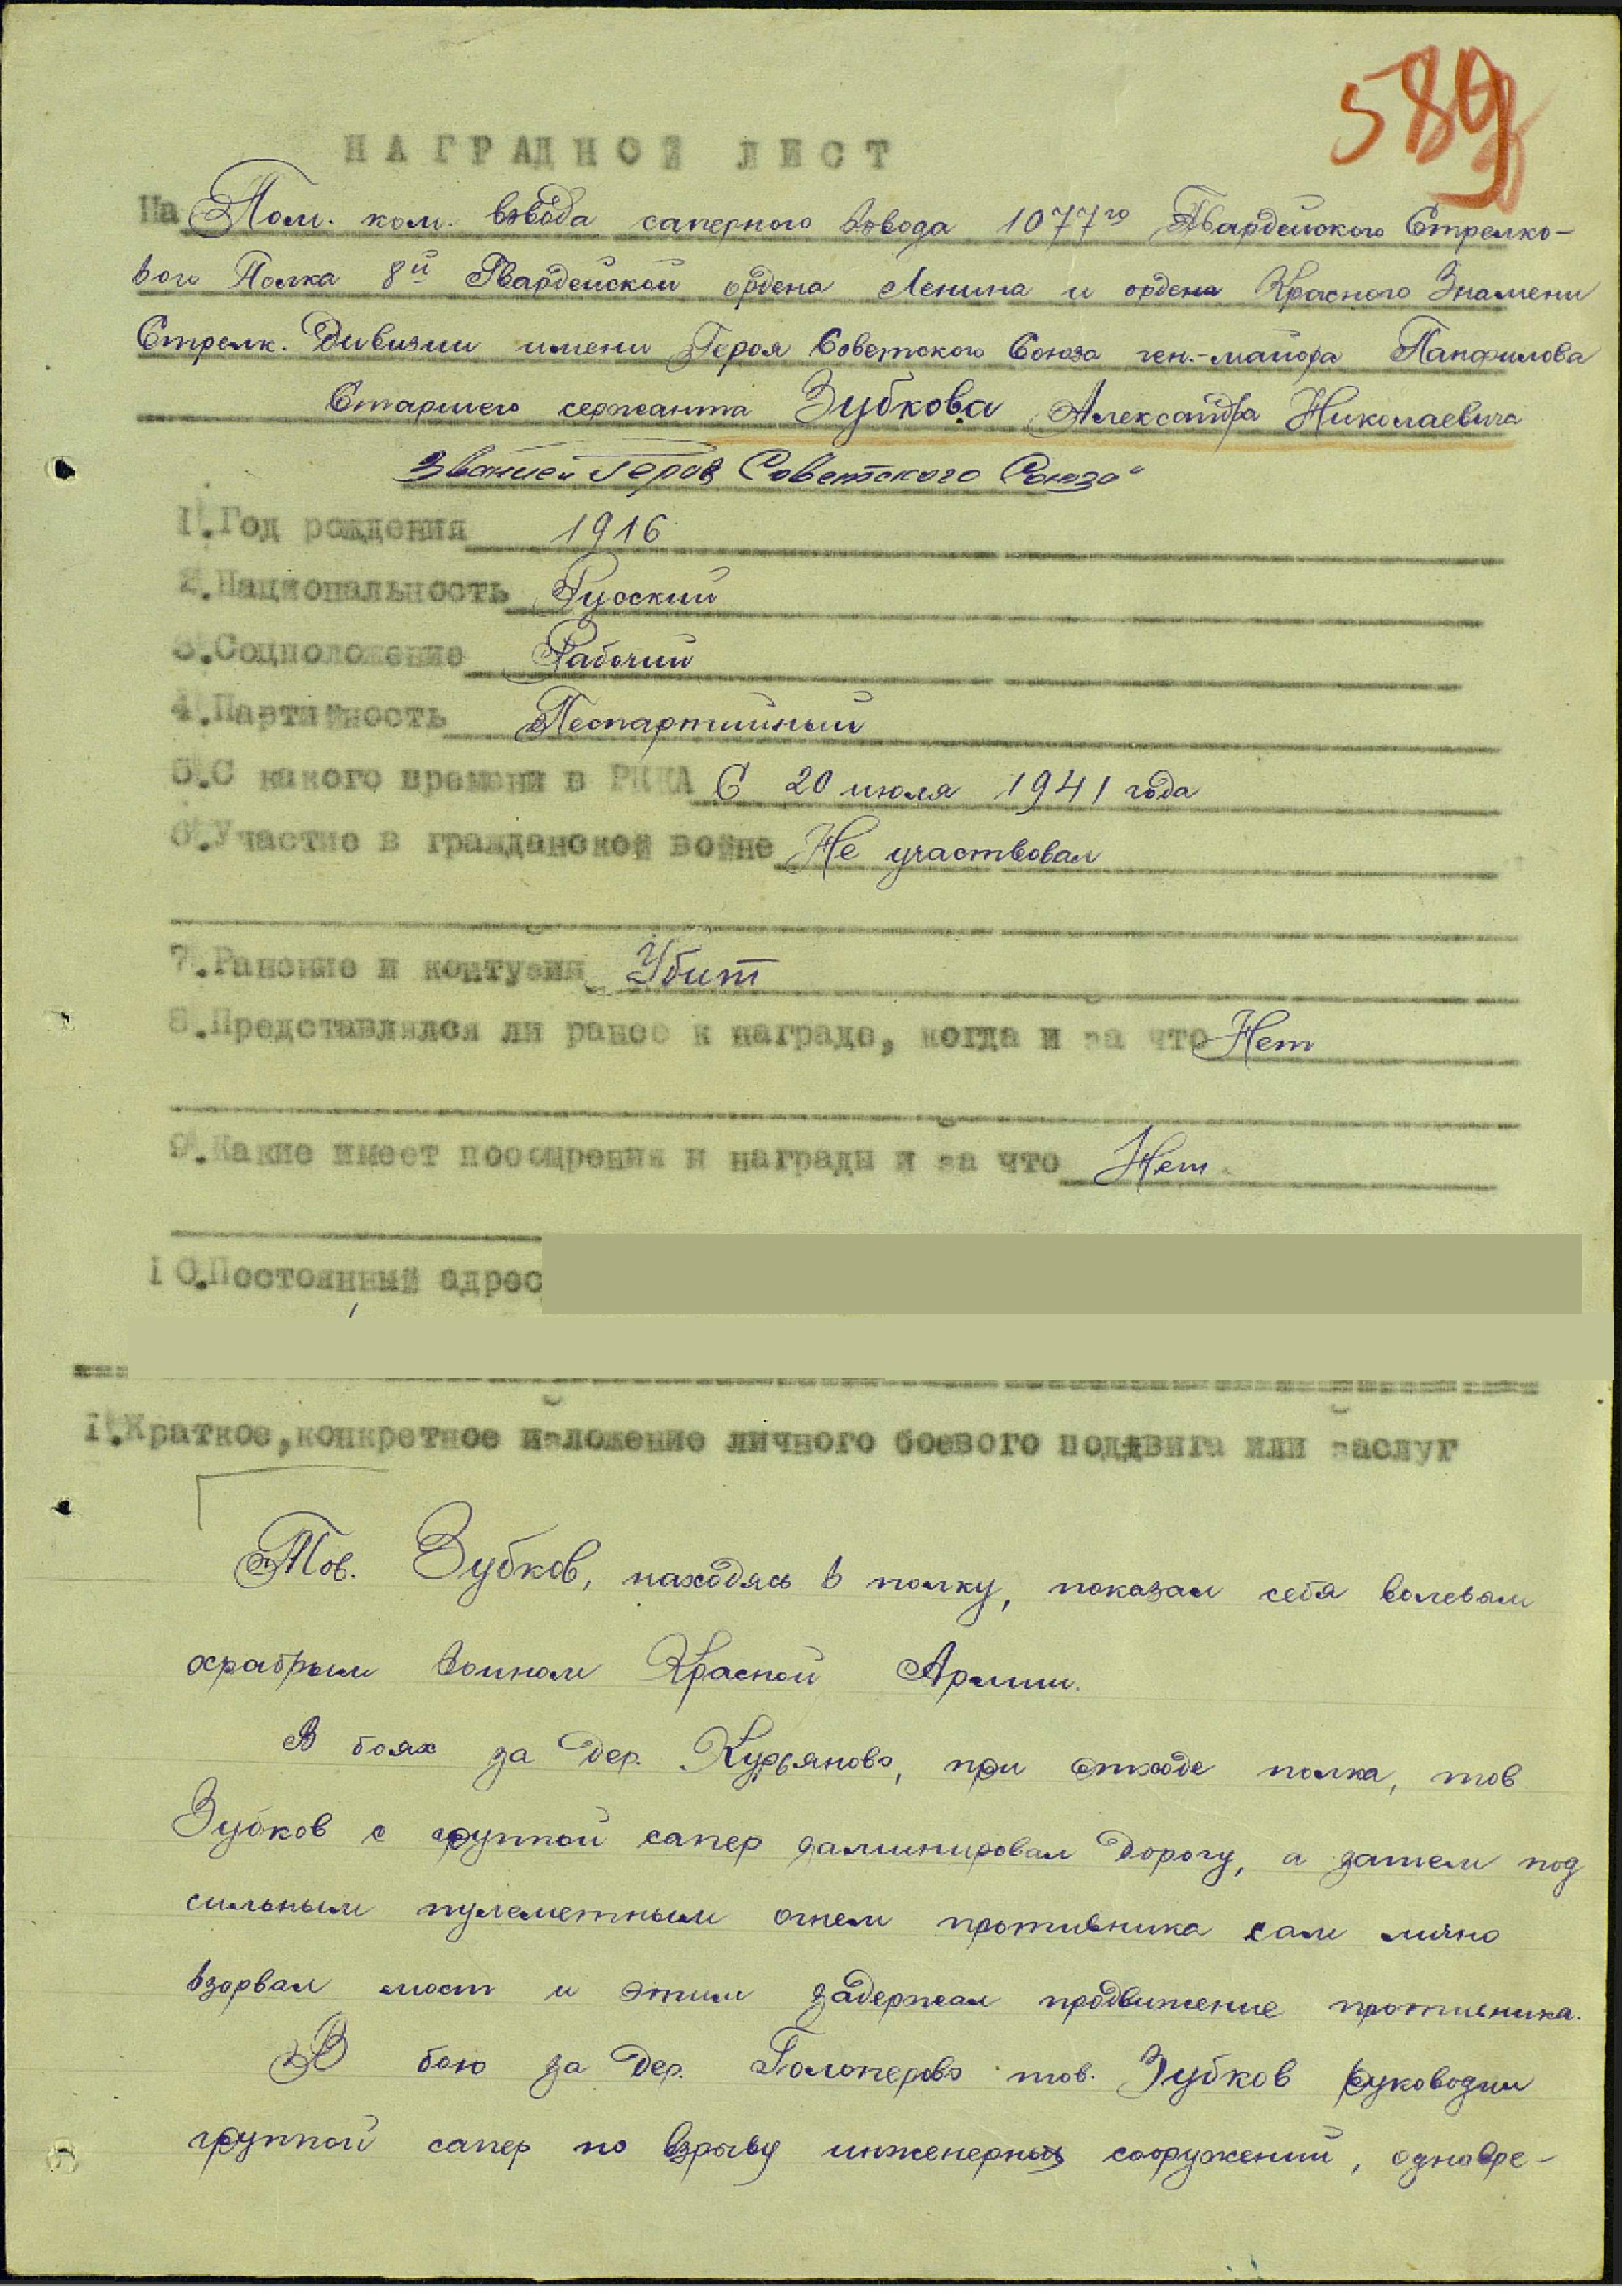 589
НАГРАДНОЙ ЛИСТ
На Пом. ком. взвода саперного взвода 1077го Гвардейского Стрелко-
вого Полка 8й Гвардейской ордена Ленина и ордена Красного Знамени
Стрелк. Дивизии имени Героя Советского Союза ген.-майора Панфилова
Старшего сержанта Зубкова Александра Николаевича
Званием Героя Советского Союза"
1.Год рождения 1916
2.Национальность Русский
3.Соцположение Рабочий
4.Партийность Беспартийный
5.С какого времени в РККА С 20 июля 1941 года
6.Участие в гражданской войне Не участвовал
7.Ранение и контузия Убит
8.Представлялся ли ранее к награде, когда и за что Нет
9.Какие имеет поощрения и награды и за что Нет.
10.Постоянный адрес
1.Краткое,конкретное изложение личного боевого поддвига или заслуг
Тов. Зубков, находясь в полку, показал себя волевым
храбрым воином Красной Армии.
В боях за дер. Курьяново, при отходе полка, тов
Зубков с группой сапер заминировал дорогу, а затем под
сильным пулеметным огнем противника сам лично
взорвал мост и этим задержал продвижение противника.
В бою за дер. Голоперово тов. Зубков руководил
группой сапер по взрыву инженерных сооружений, одновре-